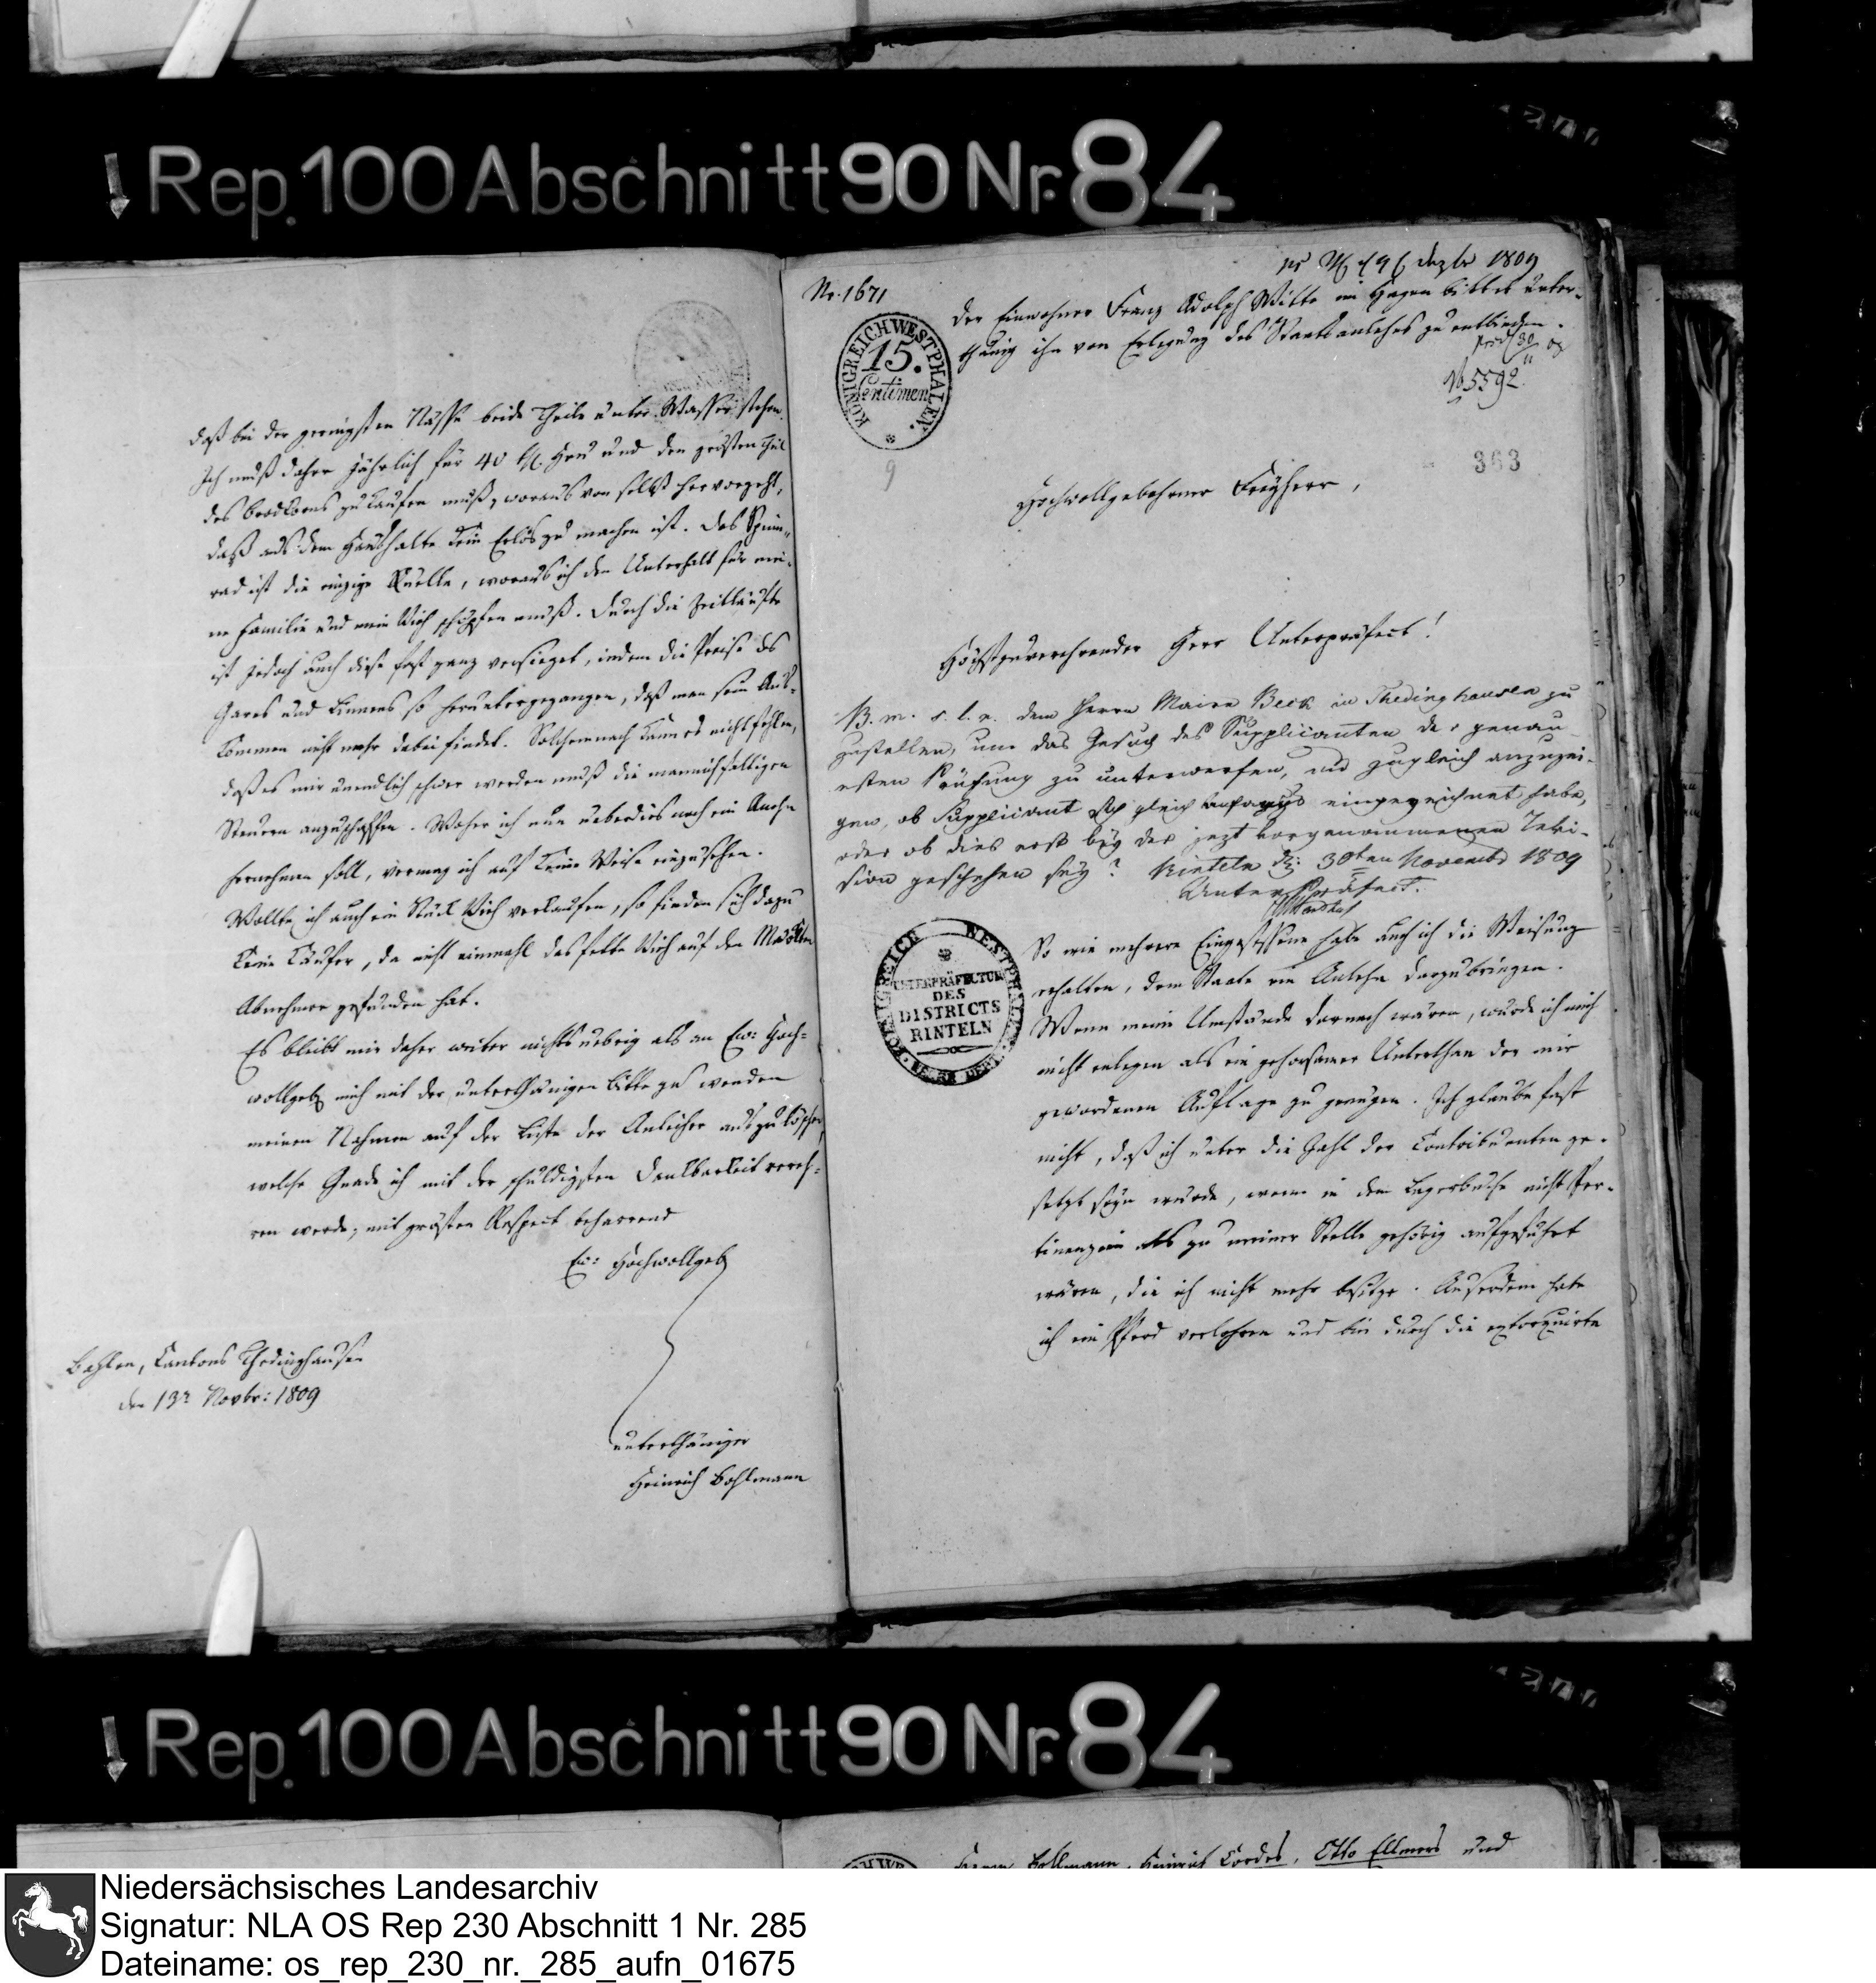 Rep. 100 Abschnitt 90 Nr. 84
daß bei der geringsten Nässe beide Theile unter Wasser stehen.
Ich muß daher jährlich für 40 Heu und den grösten Theil
des Brodkorns zu kaufen muß, woraus von selbst hervorgeht,
daß aus dem Haushalte kein Erlös zu machen ist. Das Spinn-
rad ist die einzige Quelle, woraus ich den Unterhalt für mei-
ne Familie und mein Vieh schöpfen muß. Durch die Zeitläufte
ist jedoch auch diese fast ganz versieget, indem die Preise des
Garns und Linnens so heruntergegangen, daß man sein Aus-
kommen nicht mehr dabei findet. Solchemnach kann es nicht fehlen,
daß es mir unendlich schwer werden muß die mannichfaltigen
Steuern anzuschaffen. Woher ich nun ueberdies noch ein Anlehn
hernehmen soll, vermag ich auf keine Weise einzusehen.
Wollte ich auch ein Stück Vieh verkaufen, so finden sich dazu
keine Käufer, da nicht einmahl das fette Vieh auf den Märkten
Abnehmer gefunden hat.
Es bleibt mir daher weiter nichts uebrig als an Ew: Hoch-
wollgeb mich mit der unterthänigen Bitte zu wenden
meinen Nahmen auf der Liste der Anleiher auszulöschen,
welche Gnade ich mit der schuldigsten Dankbarkeit vereh-
ren werde, mit grösten Respect beharrend
Ew: Hochwollgeb
Bahlen, Cantons Thedinghausen
den 13n Novbr: 1809
unterthäniger
Heinrich Bohlmann
Dezbr 1809
Nr. 1671
Der Einwohner Franz Adolph Witte im Hagen bittet unter-
thänig ihn von Erlegung des Staatsanlehns zu entbinden.
No 5592
KÖNIGREICH WESTPHALEN.
15.
Centimen
9
363
Hochwollgebohrner Freyherr,
Höchstzuverehrender Herr Unterpräfect!
B. m. s. l. r. dem Herrn Maire Beck in Thedinghausen zu
zustellen, um das Gesuch des Supplicanten der genau-
esten Prüfung zu unterwerfen, und zugleich anzuzei-
gen, ob Supplicant sich gleich anfangs eingezeichnet habe,
oder ob dies erst bey der jezt vorgenommenen Revi-
sion geschehen sey? Rinteln d. 30ten Novemb 1809
Unter Präfect.
KOENIGREICH WESTPHALEN
UNTERPRÄFECTUR
DES
DISTRICTS
RINTELN
So wie mehrere Eingesessene habe auch ich die Weisung
erhalten, dem Staate ein Anlehn darzubringen.
Wenn meine Umstände darnach wären, würde ich mich
nicht entlegen als ein gehorsamer Unterthan der mir
gewordenen Auflage zu genügen. Ich glaube fast
nicht, daß ich unter die Zahl der Contribuenten ge-
setzt seyn würde, wenn in dem Lagerbuche nicht Per-
tinenzien als zu meiner Stelle gehörig aufgeführt
wären, die ich nicht mehr besitze. Auserdem habe
ich ein Pferd verlohren und bin durch die extorquirte
Rep. 100 Abschnitt 90 Nr. 84
Bollmann, Heinrich Cordes, Otto Ellmers und
Niedersächsisches Landesarchiv
Signatur: NLA OS Rep 230 Abschnitt 1 Nr. 285
Dateiname: os_rep_230_nr._285_aufn_01675